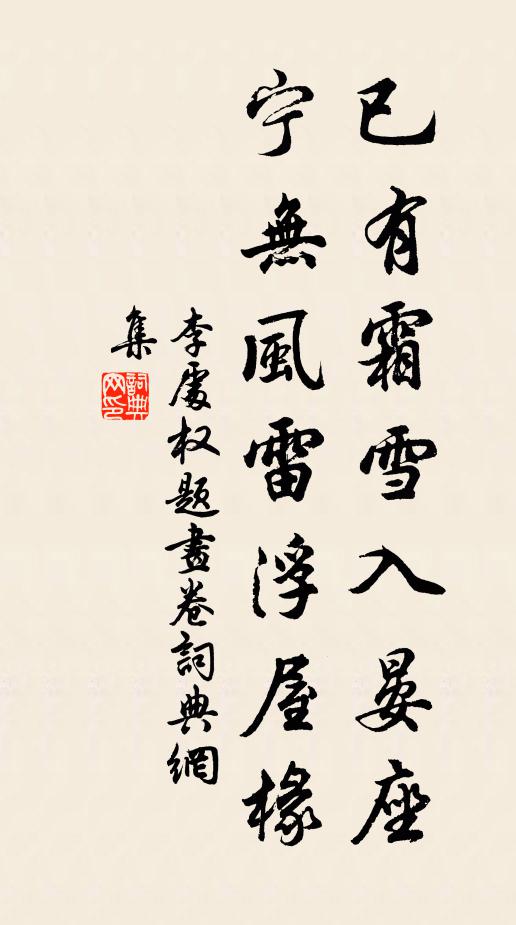 已有霜雪入晏座
宁無風雷浮屋椽
李處权题畫卷詞典網
集
詞典网印